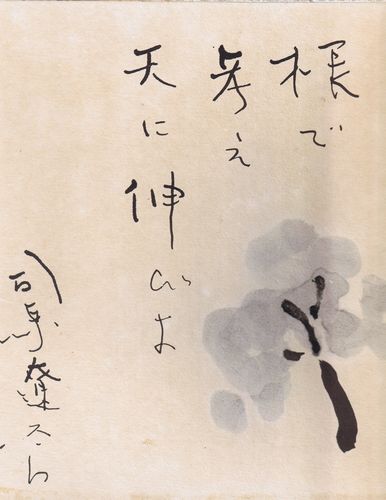 根で
考え
天に伸びよ
司馬遼太郎